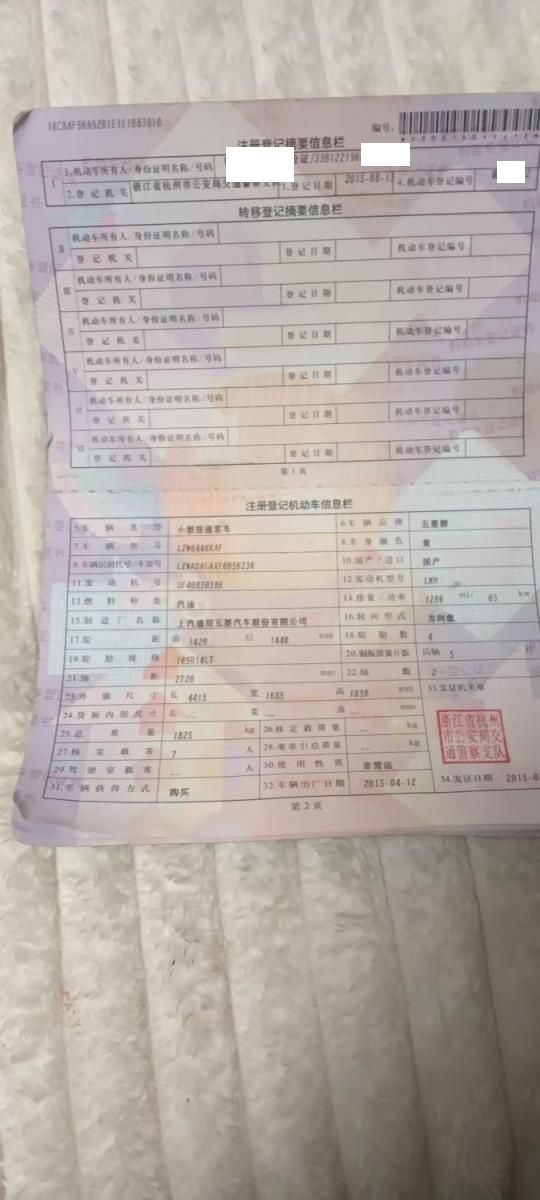 编号:
注册登记摘要信息栏
I 1.机动车所有人/身份证明名称/号码
2.登记机关 浙江省杭州市公安局交通警察支队 3.登记日期 4.机动车登记编号
转移登记摘要信息栏
II 机动车所有人/身份证明名称/号码
登记机关 登记日期 机动车登记编号
III 机动车所有人/身份证明名称/号码
登记机关 登记日期 机动车登记编号
IV 机动车所有人/身份证明名称/号码
登记机关 登记日期 机动车登记编号
V 机动车所有人/身份证明名称/号码
登记机关 登记日期 机动车登记编号
VI 机动车所有人/身份证明名称/号码
登记机关 登记日期 机动车登记编号
VII 机动车所有人/身份证明名称/号码
登记机关 登记日期 机动车登记编号
第1页
注册登记机动车信息栏
5.车辆类型 小型普通客车 6.车辆品牌 五菱牌
7.车辆型号 LZW6446KAF 8.车身颜色 黄
9.车辆识别代号/车架号 10.国产/进口 国产
11.发动机号 12.发动机型号
13.燃料种类 汽油 14.排量/功率 1206 ml/ 65 kw
15.制造厂名称 上汽通用五菱汽车股份有限公司 16.转向形式 方向盘
17.轮距 前 1420 后 1440 mm 18.轮胎数 4
19.轮胎规格 165R14LT 20.钢板弹簧片数 后轴 5 片
21.轴距 2720 mm 22.轴数 2
23.外廓尺寸 长 4415 宽 1685 高 1850 mm 33.发证机关章
24.货厢内部尺寸 长 -- 宽 -- 高 -- mm
25.总质量 1825 kg 26.核定载质量 -- kg
27.核定载客 7 人 28.准牵引总质量 -- kg
29.驾驶室载客 -- 人 30.使用性质 非营运
31.车辆获得方式 购买 32.车辆出厂日期 2015-04-12 34.发证日期 2015-
浙江省杭州
市公安局交
通警察支队
第2页